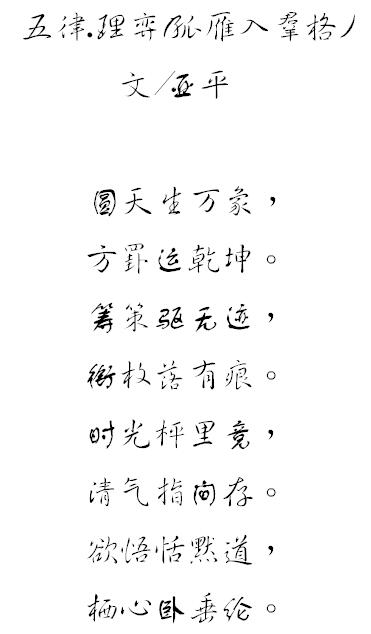 五律.理弈(孤雁入羣格)
文/亚平
圓天生万象，
方罫运乾坤。
筹策驱无迹，
衔枚落有痕。
时光枰里竟，
清气指间存。
欲悟恬默道，
栖心卧垂纶。